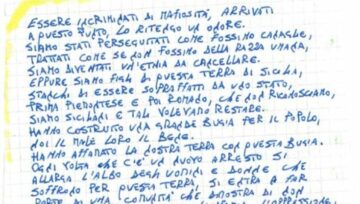 ESSERE INCRIMINATI DI MAFIOSITÀ, ARRIVATI
A QUESTO PUNTO, LO RITENGO UN ONORE.
SIAMO STATI PERSEGUITATI COME FOSSIMO CANAGLIE,
TRATTATI COME SE NON FOSSIMO DELLA RAZZA UMANA,
SIAMO DIVENTATI UN'ETNIA DA CANCELLARE.
EPPURE SIAMO FIGLI DI QUESTA TERRA DI SICILIA,
STANCHI DI ESSERE SOPRAFFATTI DA UNO STATO,
PRIMA PIEMONTESE E POI ROMANO, CHE NON RICONOSCIAMO,
SIAMO SICILIANI E TALI VOLEVANO RESTARE.
HANNO COSTRUITO UNA GRANDE BUGIA PER IL POPOLO,
NOI IL MALE LORO IL BENE.
HANNO AFFAMATO LA NOSTRA TERRA CON QUESTA BUGIA.
OGNI VOLTA CHE C'È UN NUOVO ARRESTO SI
ALLARGA L'ALBO DEGLI UOMINI E DONNE CHE
SOFFRONO PER QUESTA TERRA, SI ENTRA A FAR
PARTE DI UNA COMUNITÀ CHE DIMOSTRA DI NON